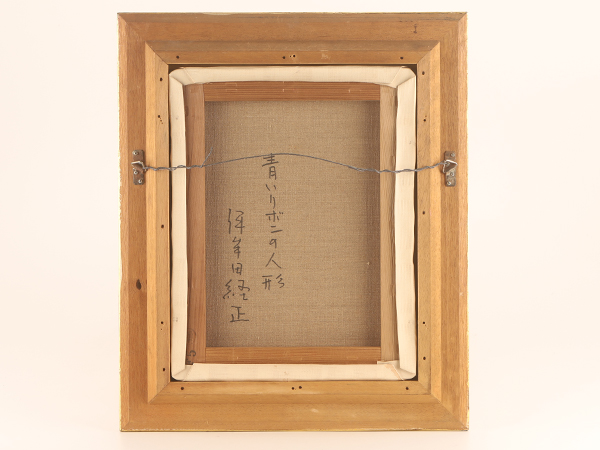 青いリボンの人形
伊牟田経正